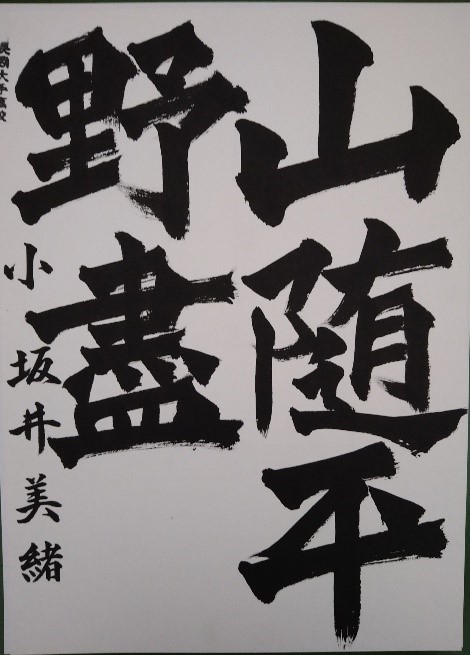 山随平
野盡
小坂井美緒
長岡大手高校